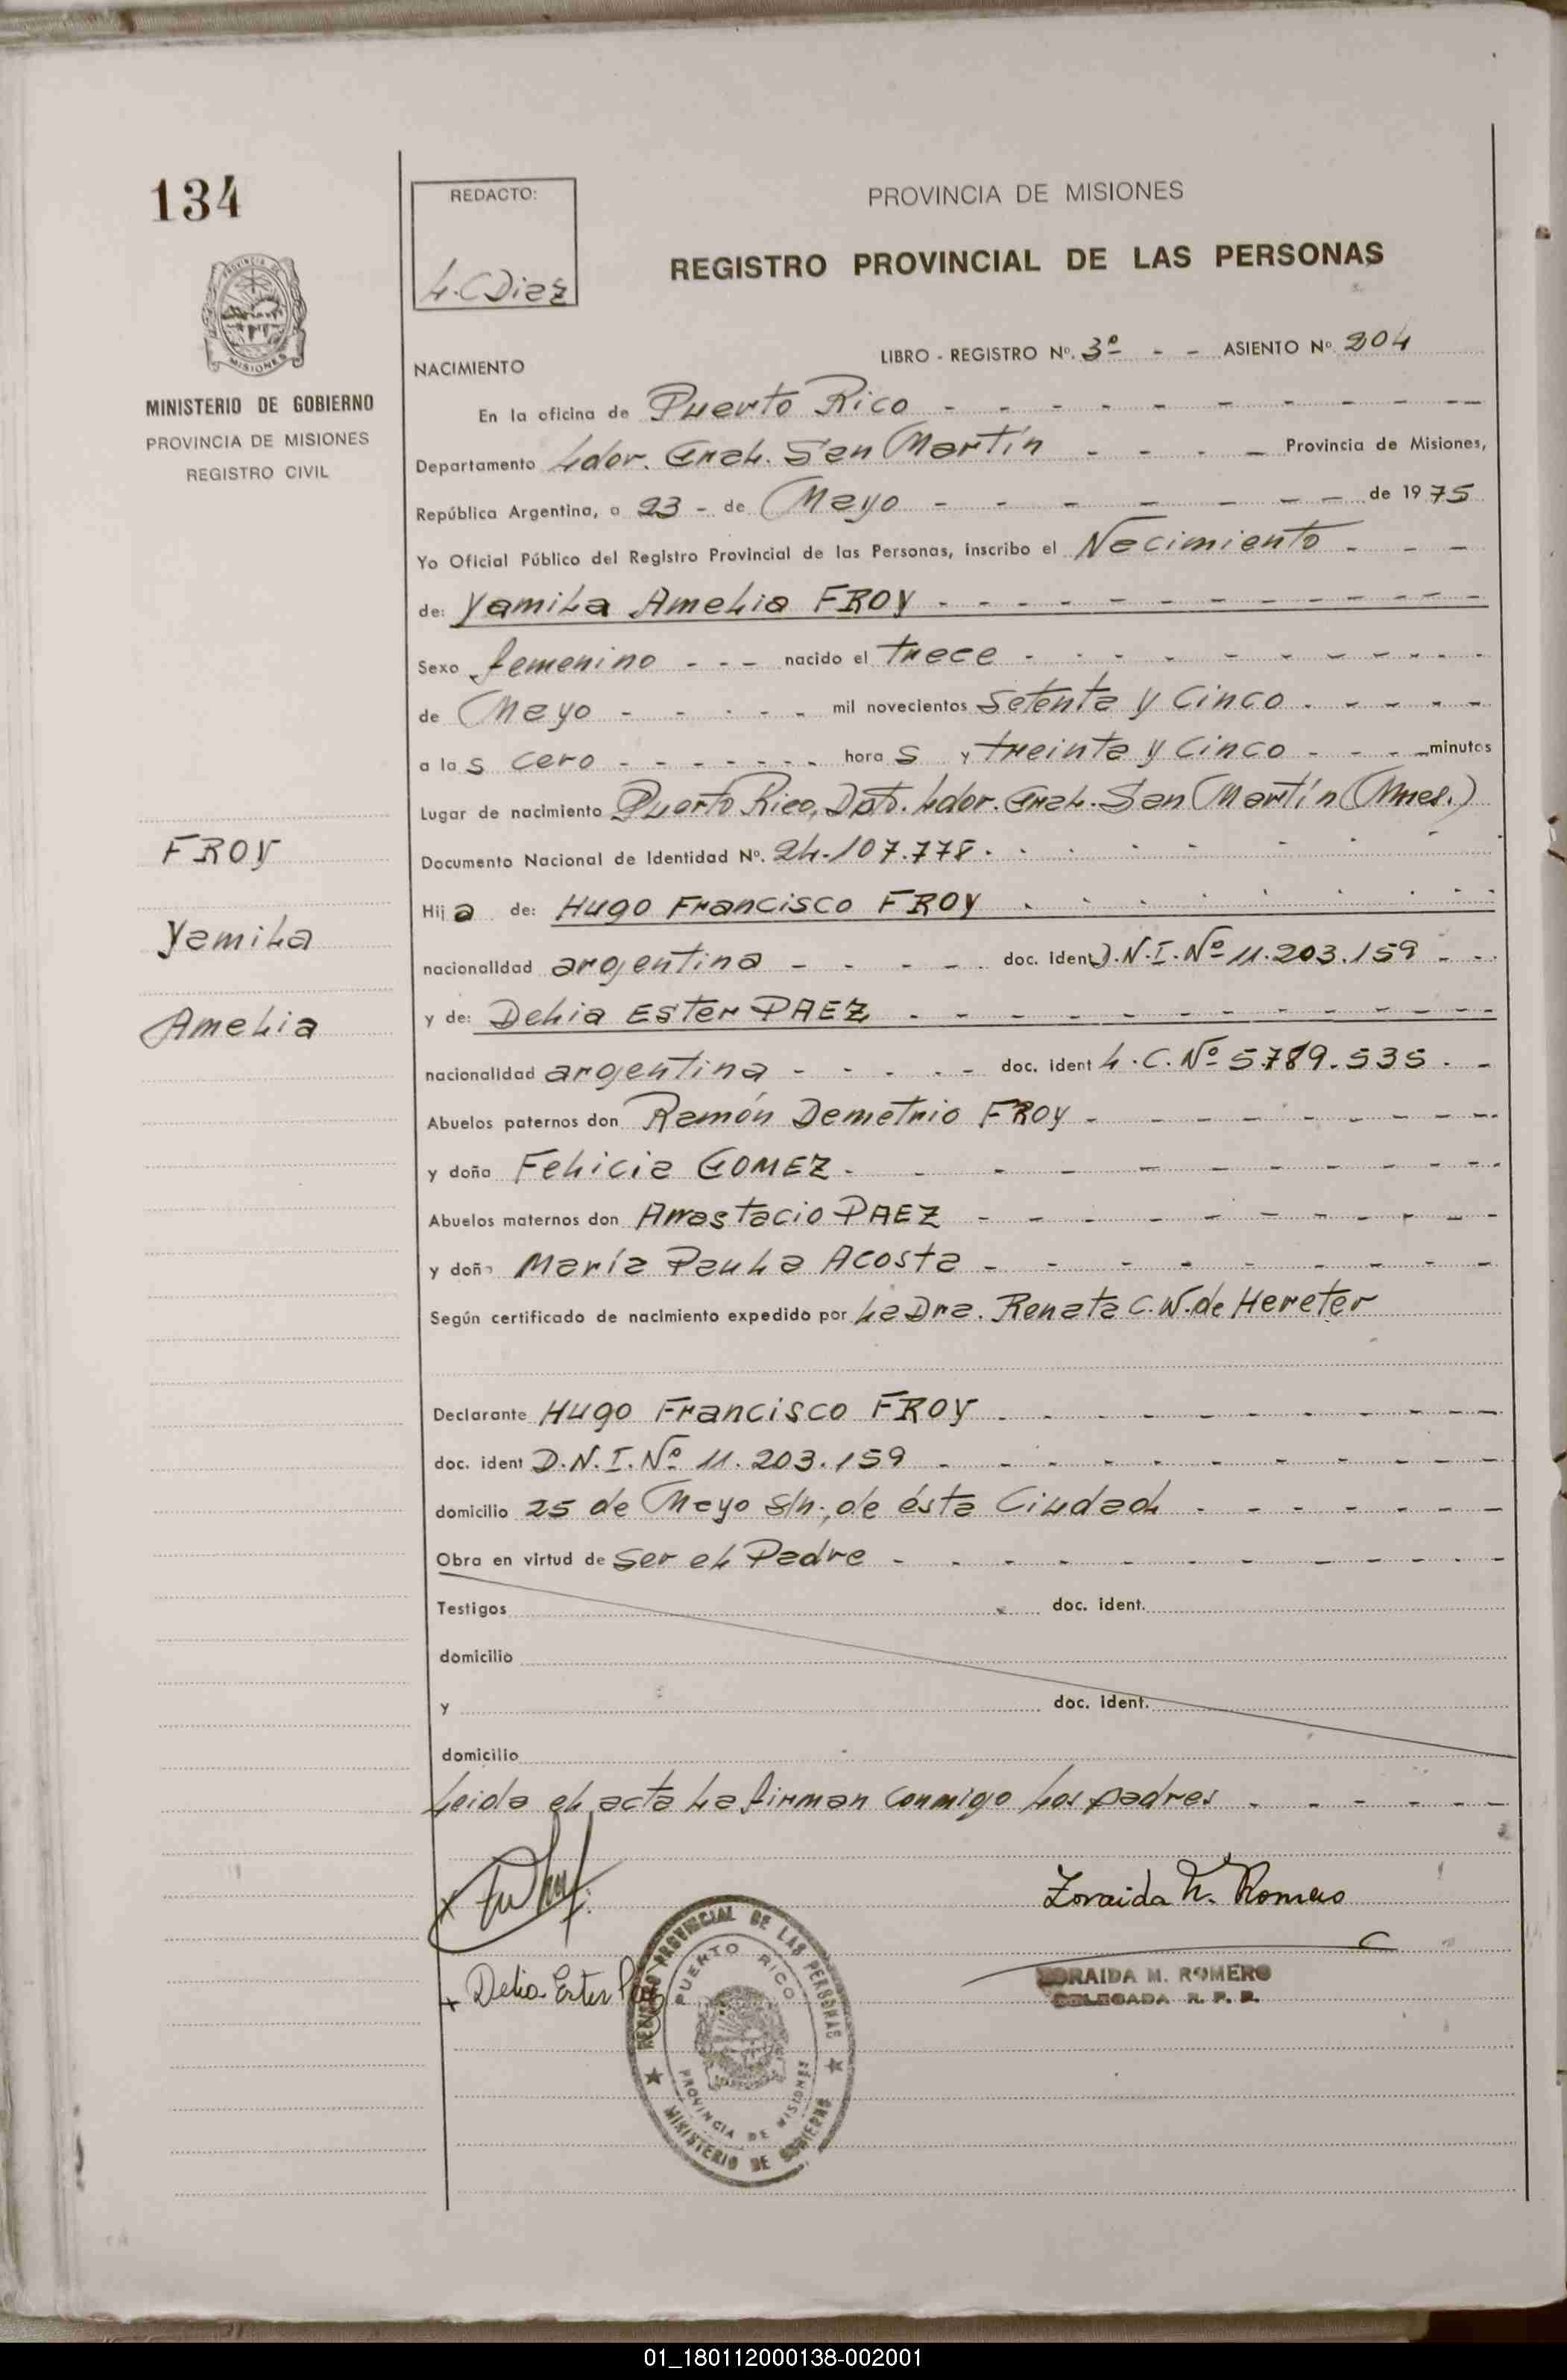 134
REDACTO:
L. C Diaz
PROVINCIA DE MISIONES
REGISTRO PROVINCIAL DE LAS PERSONAS
MINISTERIO DE GOBIERNO
PROVINCIA DE MISIONES
REGISTRO CIVIL
LIBRO - REGISTRO Nº. 3º - - ASIENTO Nº 204
NACIMIENTO
En la oficina de Puerto Rico
Departamento Ldor. Gral. San Martín Provincia de Misiones,
República Argentina, a 23 - de Mayo de 1975
Yo Oficial Público del Registro Provincial de las Personas, inscribo el Nacimiento
de: Yamila Amelia FROY
Sexo femenino nacido el trece
de Mayo mil novecientos Setenta y Cinco
a las cero horas y treinta y Cinco minutos
Lugar de nacimiento Puerto Rico, Dpto. Ldor. Gral. San Martín (Mnes.)
Documento Nacional de Identidad Nº. 24.107.778.
Hija de: Hugo Francisco FROY
nacionalidad argentina doc. ident D.N.I. Nº 11.203.159
y de: Delia Ester PAEZ
nacionalidad argentina doc. ident L.C. Nº 5.789.535.
Abuelos paternos don Ramón Demetrio FROY
y doña Felicia GOMEZ
Abuelos maternos don Anastacio PAEZ
y doña María Paula Acosta
Según certificado de nacimiento expedido por La Dra. Renata C. W. de Hereter
Declarante Hugo Francisco FROY
doc. ident D.N.I. Nº 11.203.159
domicilio 25 de Mayo s/n., de ésta Ciudad
Obra en virtud de Ser el Padre
Testigos doc. ident.
domicilio
y doc. ident.
domicilio
Leida el acta la firman conmigo los padres
FROY
Yamila
Amelia
Zoraida M. Romero
x Delia Ester
ZORAIDA M. ROMERO
DELEGADA R. P. P.
REGISTRO PROVINCIAL DE LAS PERSONAS
PUERTO RICO
PROVINCIA DE MISIONES
MINISTERIO DE GOBIERNO
01_180112000138-002001